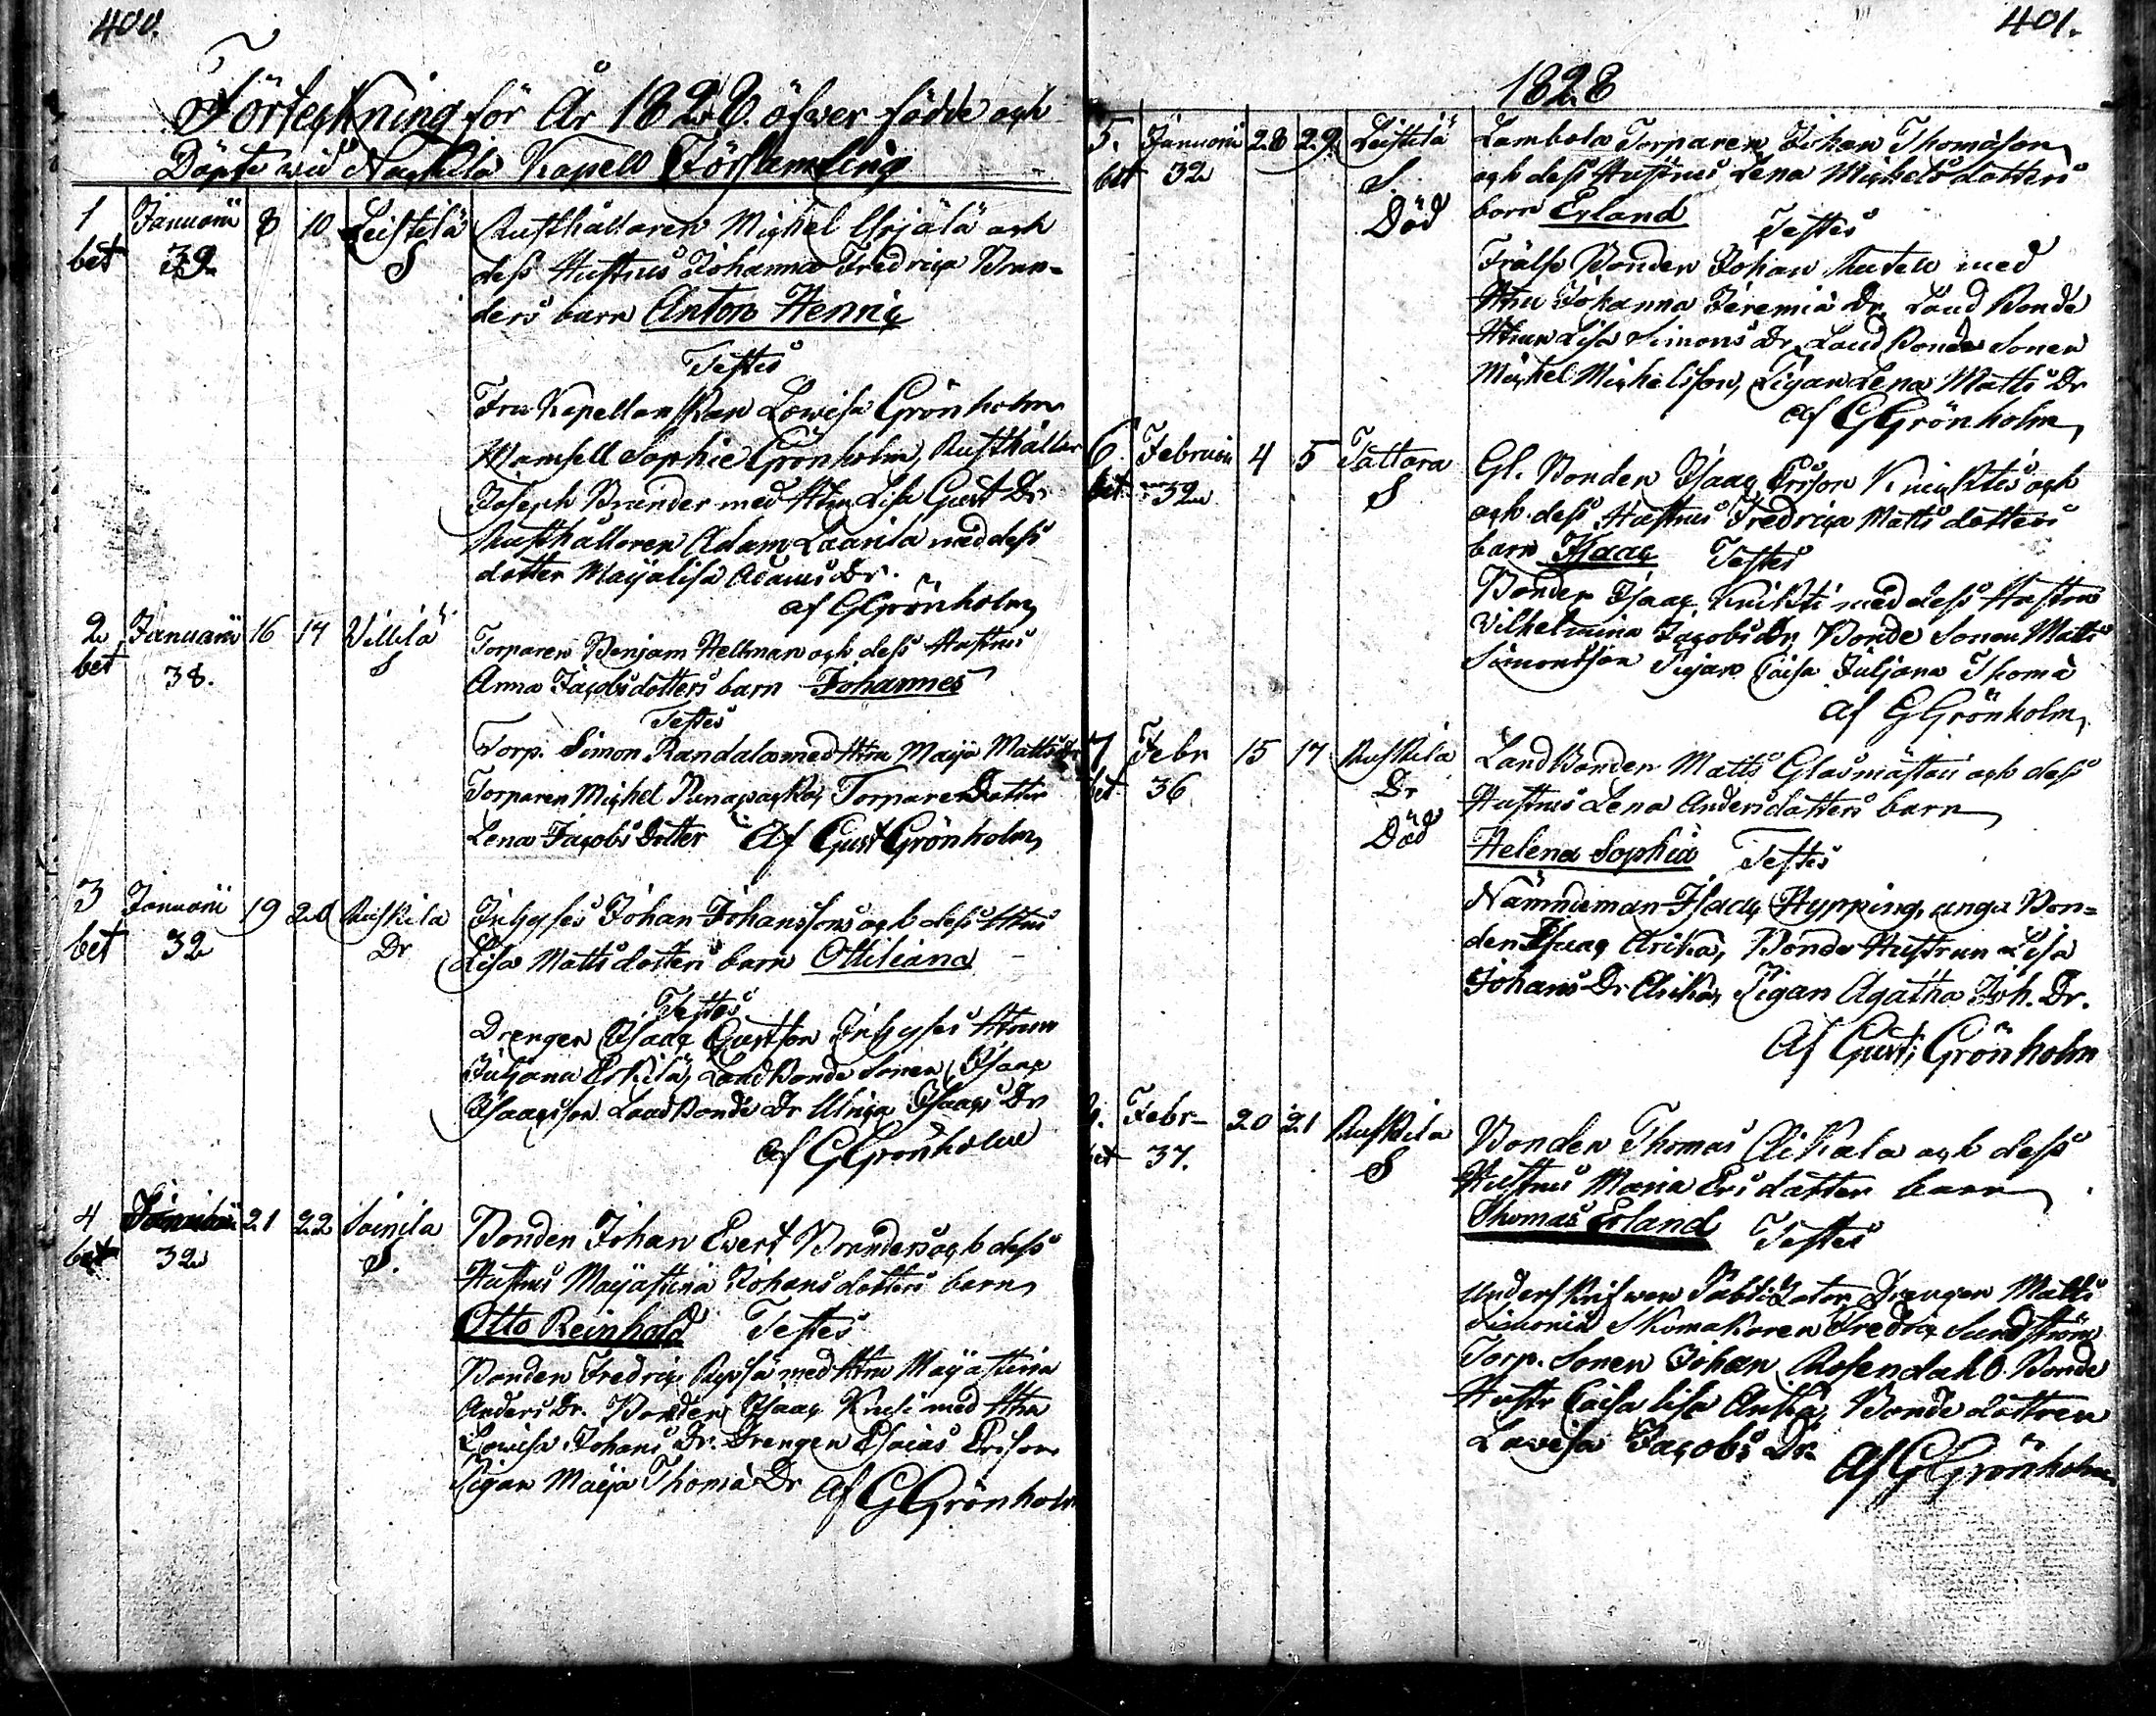 400.
Förteckning för År 1828. öfver födde och
Döpte wid Nackila Kapell Församling
1 Januarii 8 10 Leistilä Rusthållaren Michel Yrjälä och
bet 39 S dess Hustrus Johanna Fredrica Bran-
ders barn Anton Henric
Testes
Fru Kapellanskan Lowisa Grönholm
Mamsell Sophie Grönholm, Rusthållar
Joseph Brander med Hru Lisa Gust Dr
Rusthållaren Adam Laarila med dess
dotter Maijalisa Adams Dr.
af GGrönholm
2 Januarii 16 17 Villilä Torparen Benjam Hellman och dess Hustrus
bet 38. S Anna Jacobsdotters barn Johannes
Testes
Torp. Simon Randala med Hru Maija Matts Dr
Torparen Michel Torparedotter
Lena Jacobs Dotter Af Gust Grönholm
3 Januarii 19 20 Ruskila Inhyses Johan Johanssons och dess Hrus
bet 32 Dr Lisa Matts dotters barn Ottiliana
Testes
Drengen Isaac Gustson Inhyses Hrun
Juljana Eskilä, Landbonde Sonen Isaac
Isaacsson Landbonde Dr Ulrica Isaacs Dr
af GGrönholm
4 Januarii 21 22 Soinila Bonden Johan Evert Branders och dess
bet 32 S. Hustrus Maijastina Johans dotters barn
Otto Reinhold Testes
Bonden Fredric med Hru Maijastina
Anders Dr. Bonden Isaac Krusi med Hru
Lowisa Johans Dr. Drengen Esaias Ericson
Pigan Maija Thomä Dr af GGrönholm
401.
1828
5. Januarii 28 29 Leistilä Lambola Torparen Johan Thomäson
bet 32 S. och dess Hustrus Lena Michelsdotters
Död barn Erland Testes
Frälse Bonden Johan med
Hru Johanna Jeremiä Dr, Land Bonde
Hrun Lisa Simons Dr, Land Bonde Sonen
Michel Michelsson, Pigan Lena Matts Dr
af GGrönholm
6. Februarii 4 5 Tattara Gl. Bonden Isaac Ericson Knicktis och
bet 32 S och dess Hustrus Fredrica Matts dotters
barn Isaac Testes
Bonden Isaac Knikti med dess Hustru
Vilhelmina Jacobs Dr, Bonde Sonen Matts
Simonsson Pigan Caisa Juljana Thomä
af GGrönholm
7 Febr 15 17 Ruskila Landbonden Matts Glasmästari och dess
bet 36 Dr Hustrus Lena Andersdotters barn
Död Helena Sophia Testes
Nämndeman Isaac Hypping, unga Bon-
den Isaac Arika, Bonde Hustrun Lisa
Johans Dr Arika, Pigan Agatha Joh. Dr.
Af Gust. Grönholm
Febr 20 21 Ruskila Bonden Thomas Alikala och dess
bet 37. S Hustrus Maria Ersdotter barn
Thomas Erland Testes
Underskrifwen Drengen Matts
Skomakaren Fredric Sundström
Torp. Sonen Johan Rosendahl. Bonde
Hustr Caisa Lisa Anttila, Bonde dottren
Lovisa Jacobs Dr. Af GGrönholm